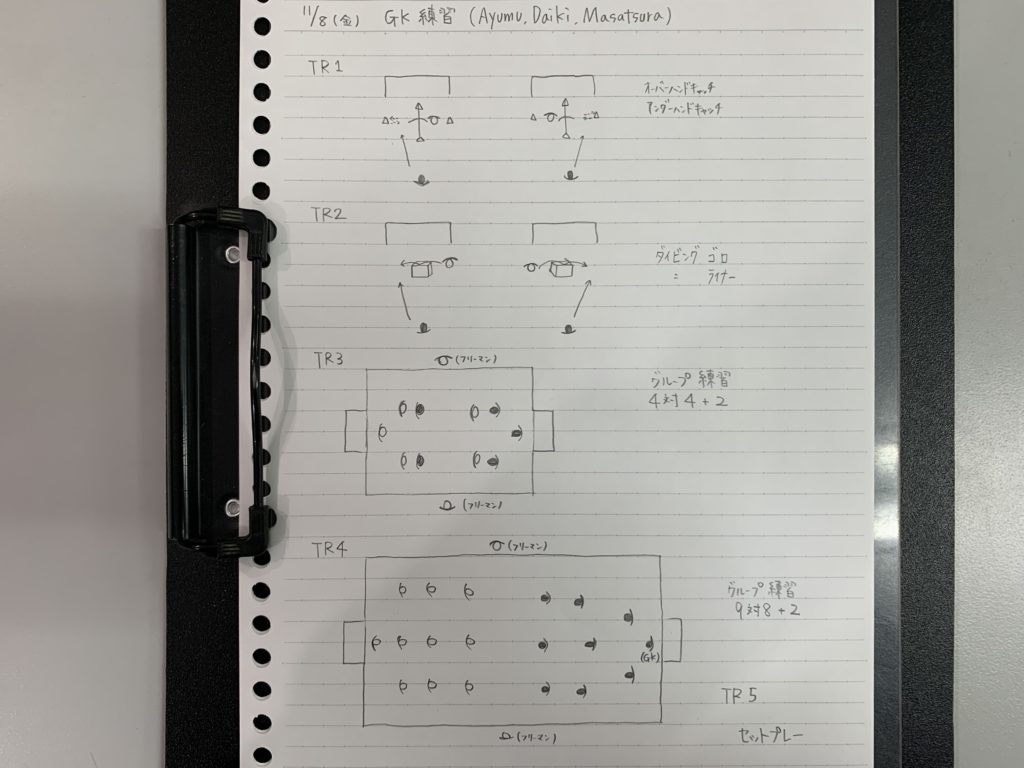 11/8(金) GK 練習 (Ayumu, Daiki, Masatsura)
TR1
オーバーハンドキャッチ
アンダーハンドキャッチ
TR2
ダイビング ゴロ
〃 ライナー
TR3
(フリーマン)
グループ練習
4対4+2
(フリーマン)
TR4
(フリーマン)
グループ練習
9対8+2
(GK)
TR5
セットプレー
(フリーマン)